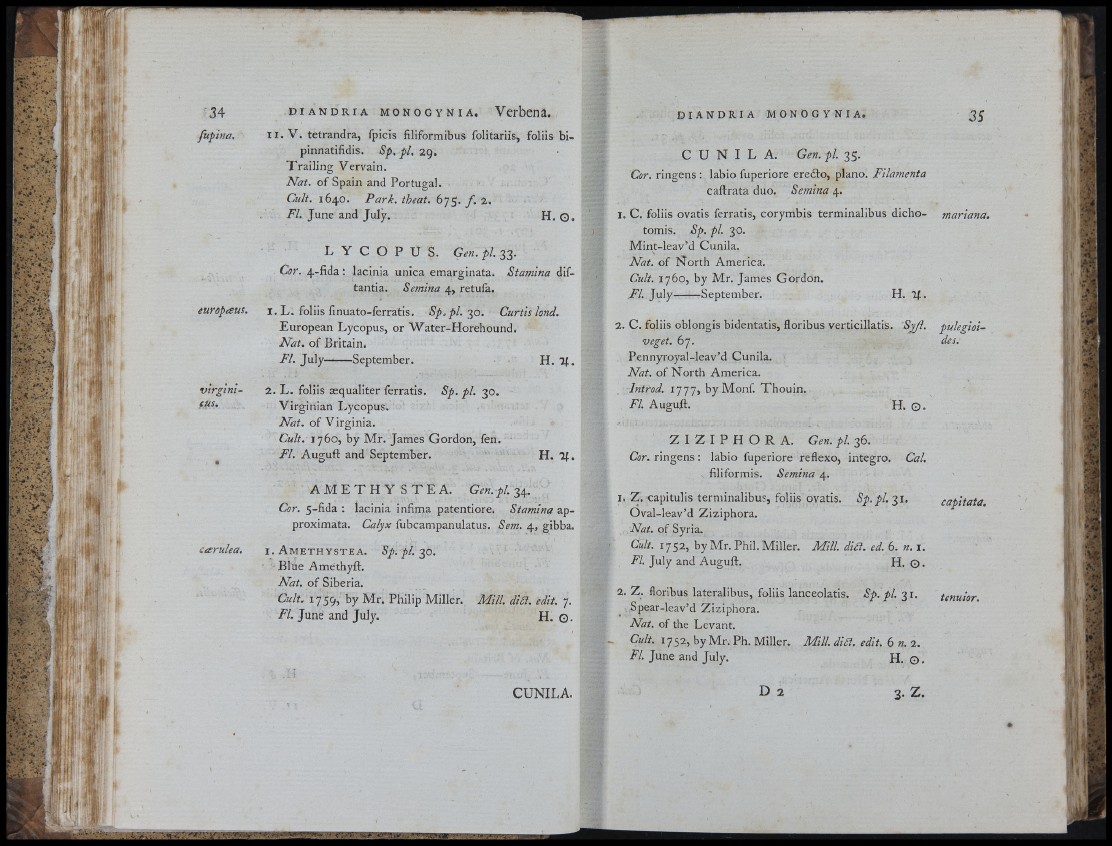 34 DIANDRIA MONOGYNIA. Verbena.
ſupina. 11. V. tetrandra, ſpicis filiformibus ſolitariis, foliis bi-
pinnatifidis. Sp. pl. 29.
Trailing Vervain.
Nat. of Spain and Portugal.
Cult. 1640. Park. theat. 675. f. 2.
Fl. June and July. H. ☉.
LYCOPUS. Gen. pl. 33.
Cor. 4-fida: lacinia unica emarginata. Stamina diſ-
tantia. Semina 4, retuſa.
europæus. 1. L. foliis ſinuato-ſerratis. Sp. pl. 30. Curtis lond.
European Lycopus, or Water-Horehound.
Nat. of Britain.
Fl. July——September. H. ♃.
virgini- 2. L. foliis æqualiter ſerratis. Sp. pl. 30.
cus. Virginian Lycopus.
Nat. of Virginia.
Cult. 1760, by Mr. James Gordon, ſen.
Fl. Auguſt and September. H. ♃.
AMETHYSTEA. Gen. pl. 34.
Cor. 5-fida: lacinia infima patentiore. Stamina ap-
proximata. Calyx ſubcampanulatus. Sem. 4, gibba.
cærulea. 1. AMETHYSTEA. Sp. pl. 30.
Blue Amethyſt.
Nat. of Siberia.
Cult. 1759, by Mr. Philip Miller. Mill. dict. edit. 7.
Fl. June and July. H. ☉.
CUNILA.
DIANDRIA MONOGYNIA. 35
CUNILA. Gen. pl. 35.
Cor. ringens: labio ſuperiore erecto, plano. Filamenta
caſtrata duo. Semina 4.
1. C. foliis ovatis ſerratis, corymbis terminalibus dicho- mariana.
tomis. Sp. pl. 30.
Mint-leav'd Cunila.
Nat. of North America.
Cult. 1760, by Mr. James Gordon.
Fl. July——September. H. ♃.
2. C. foliis oblongis bidentatis, floribus verticillatis. Syſt. pulegioi-
veget. 67. des.
Pennyroyal-leav'd Cunila.
Nat. of North America.
Introd. 1777, by Monſ. Thouin.
Fl. Auguſt. H. ☉.
ZIZIPHORA. Gen. pl. 36.
Cor. ringens: labio ſuperiore reflexo, integro. Cal.
filiformis. Semina 4.
1. Z. capitulis terminalibus, foliis ovatis. Sp. pl. 31. capitata.
Oval-leav'd Ziziphora.
Nat. of Syria.
Cult. 1752, by Mr. Phil. Miller. Mill. dict. ed. 6. n. 1.
Fl. July and Auguſt. H. ☉.
2. Z. floribus lateralibus, foliis lanceolatis. Sp. pl. 31. tenuior.
Spear-leav'd Ziziphora.
Nat. of the Levant.
Cult. 1752, by Mr. Ph. Miller. Mill. dict. edit. 6 n. 2.
Fl. June and July. H. ☉.
D 2 3. Z.